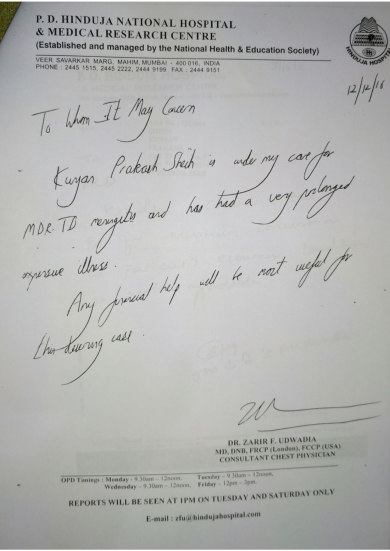 P. D. HINDUJA NATIONAL HOSPITAL
& MEDICAL RESEARCH CENTRE
(Established and managed by the National Health & Education Society)
VEER SAVARKAR MARG, MAHIM, MUMBAI - 400 016, INDIA
PHONE : 2445 1515, 2445 2222, 2444 9199 FAX : 2444 9151
HINDUJA HOSPITAL
12/12/16
To Whom It May Concern
Prakash is under my care for
MDR.TB meningitis and has had a very prolonged
expensive illness.
Any financial help will be most useful for
this deserving case.
DR. ZARIR F. UDWADIA
MD, DNB, FRCP (London), FCCP (USA)
CONSULTANT CHEST PHYSICIAN
OPD Timings : Monday - 9.30am - 12noon, Tuesday - 9.30am - 12noon,
Wednesday - 9.30am - 12noon, Friday - 12pm - 2pm.
REPORTS WILL BE SEEN AT 1PM ON TUESDAY AND SATURDAY ONLY
E-mail : zfu@hindujahospital.com